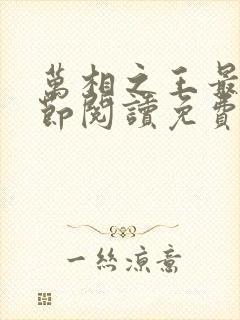 萬相之王最
節閱讀免費
一絲涼意